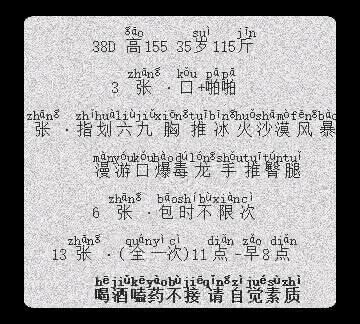 gāo suì jīn
38D 高155 35岁115斤
zhāng kǒu pāpā
3 张 · 口+啪啪
zhāng zhǐhuàliùjiǔxiōngtuībīnghuǒshāmòfēngbào
张 · 指划六九 胸 推 冰 火沙漠 风 暴
mànyóukǒubàodúlóngshǒutuītúntuǐ
漫游口爆毒 龙 手 推臀腿
zhāng bāoshíbùxiàncì
6 张 · 包时不限次
zhāng quányīcì diǎn zǎo diǎn
13 张 · (全一次)11点-早8点
hējiǔkēyàobùjiēqǐngzìjuésùzhì
喝酒嗑药不接 请 自觉素质